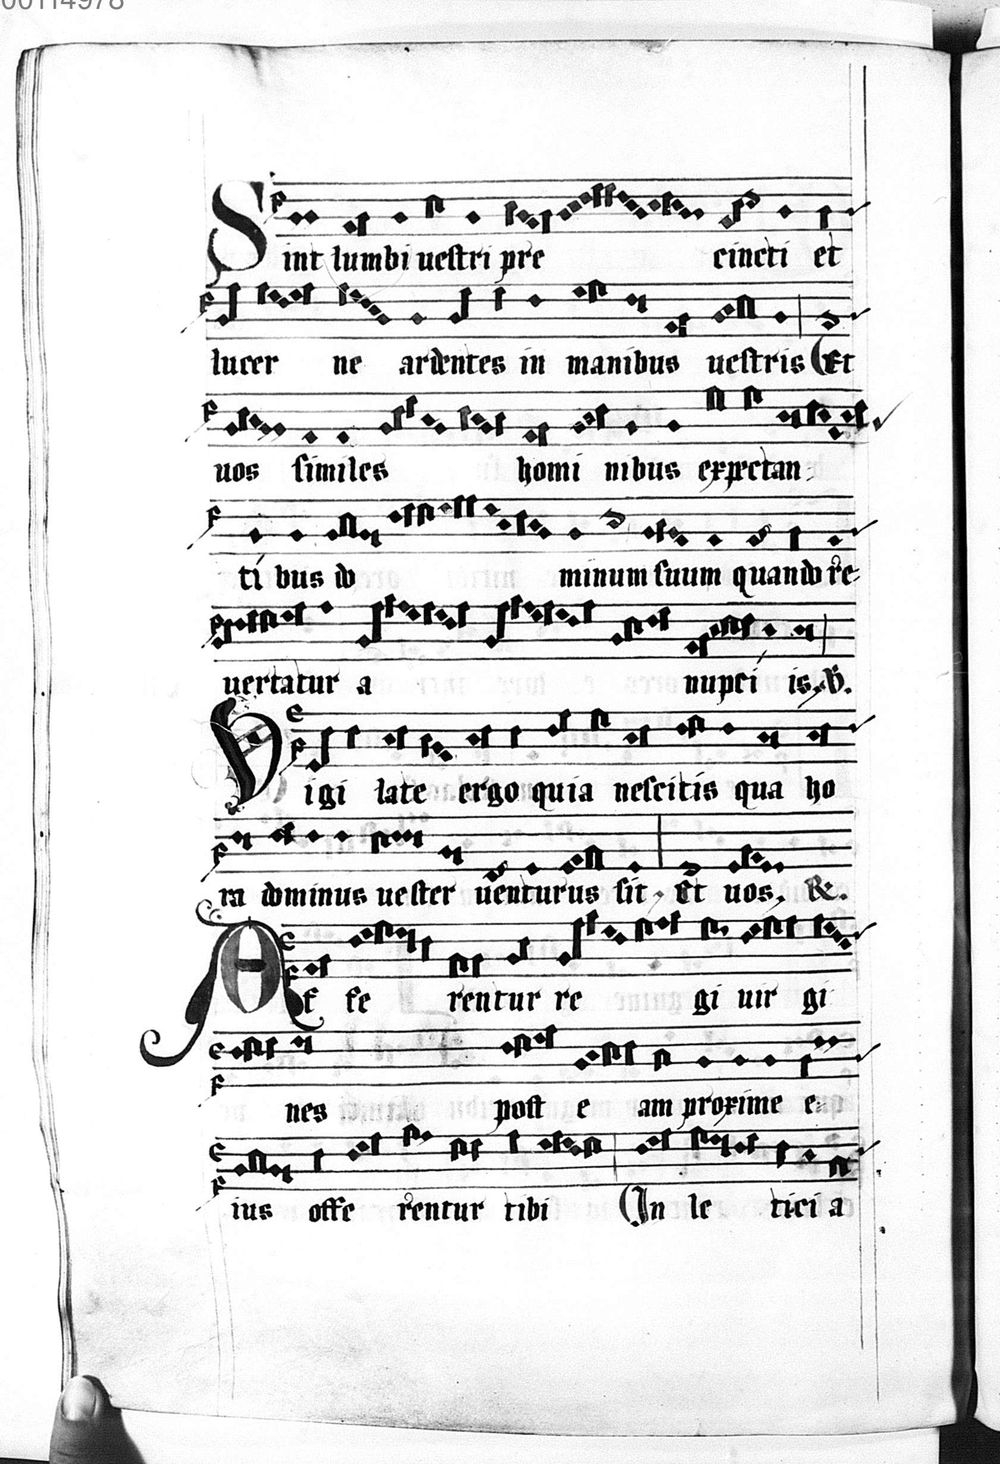 00114978
Sint lumbi uestri pre cincti et
lucer ne ardentes in manibus uestris (Et
uos similes homi nibus expectan-
ti bus do minum suum quando re-
uertatur a nupci is. V.
Vigi late ergo quia nescitis qua ho
ra dominus uester uenturus sit. Et uos. &.
Affe rentur re gi uir gi
nes post e am proxime e-
ius offe rentur tibi (In le tici a